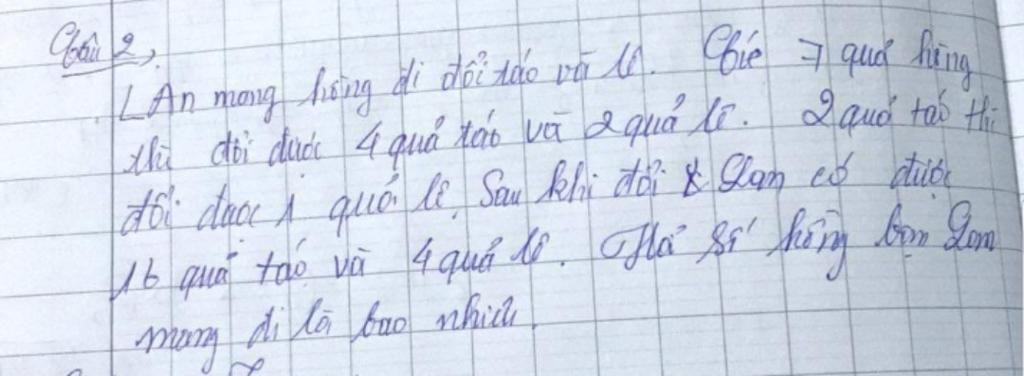 Câu 2,
LAn mang hồng đi đổi táo và lê. Cứ 7 quả hồng
thì đổi được 4 quả táo và 2 quả lê. 2 quả táo thì
đổi được 1 quả lê. Sau khi đổi Lan có được
16 quả táo và 4 quả lê. Hỏi số hồng bạn Lan
mang đi là bao nhiêu